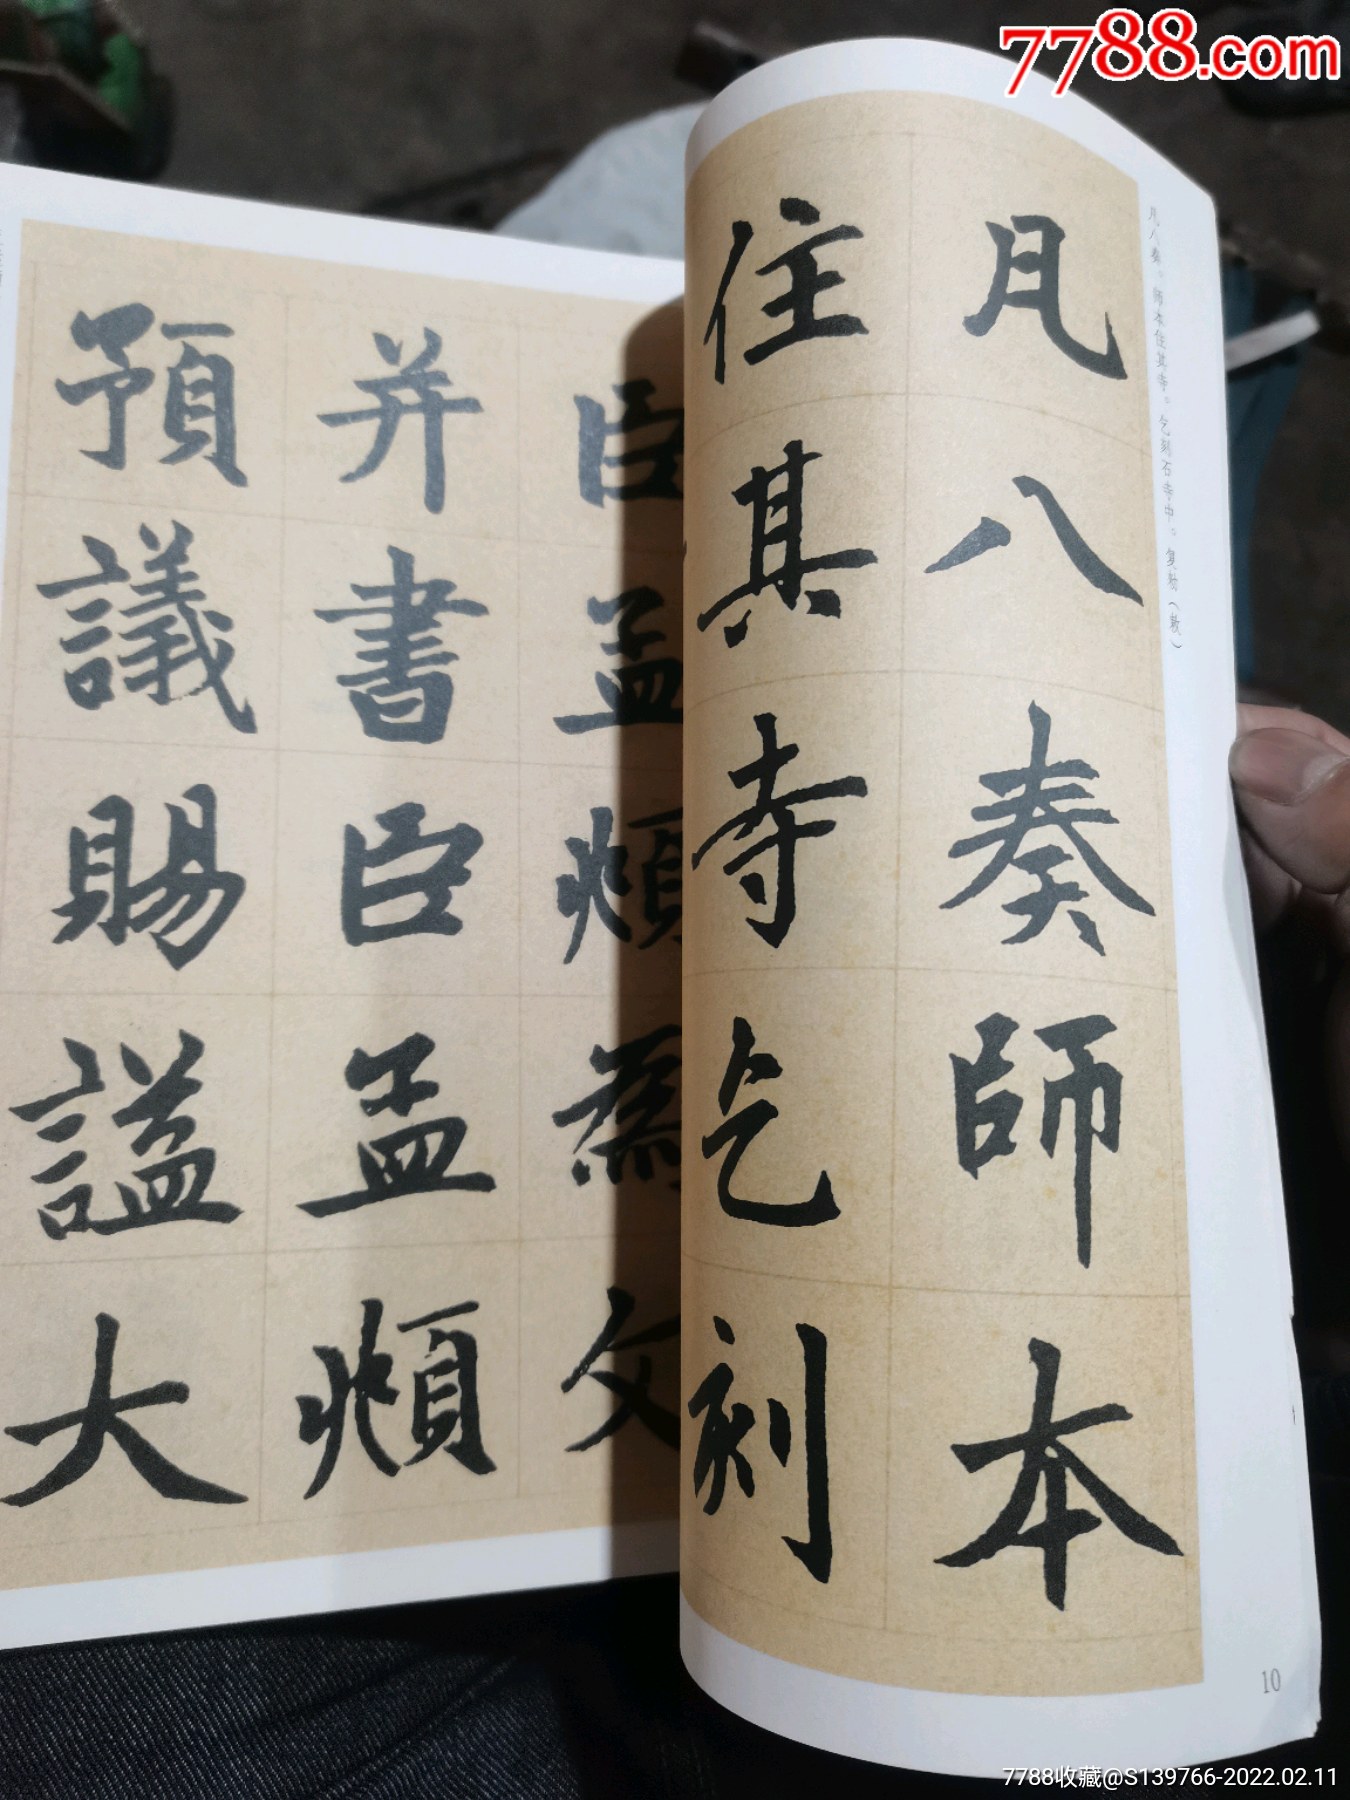 7788.com
凡八奏。师本住其寺。乞刻石寺中。复勑（敕）
凡八奏師本
住其寺乞刻
臣孟頫為文
并書臣孟頫
預議賜謚大
10
7788收藏@S139766-2022.02.11